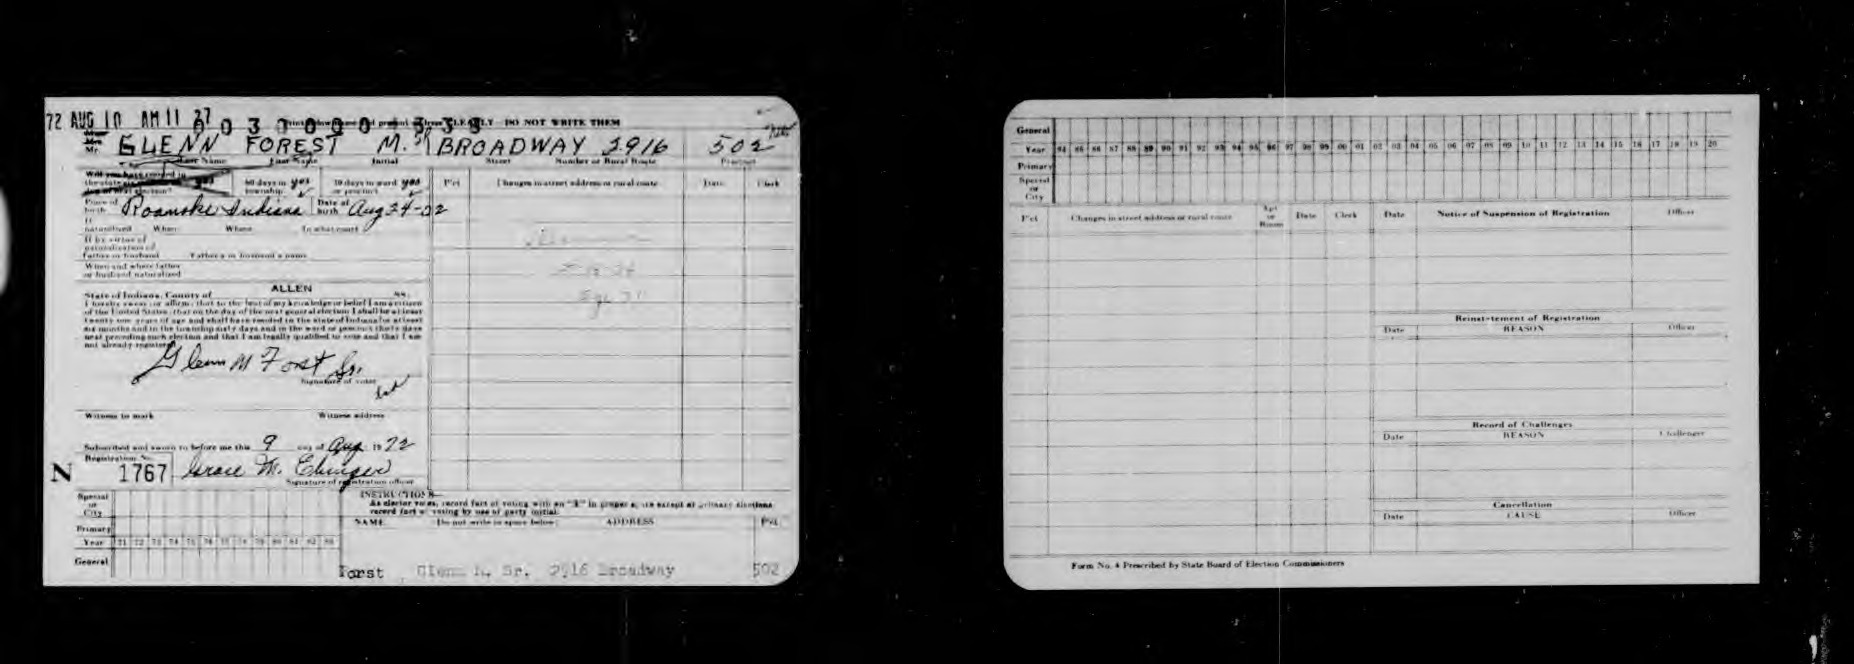 72 AUG 10 AM 11 27
DO NOT WRITE THEM
Mr. GLENN FOREST M. Sr BROADWAY 2916 502
Last Name First Name Initial Street Number or Rural Route Precinct
Will you have resided in
the state yes 60 days in yes 30 days in ward yes
day of next election? township or precinct
Pct Changes in street address or rural route Date Clerk
Place of birth Roanoke Indiana Date of birth Aug 24-02
If
naturalized When Where In what court
If by virtue of
naturalization of
father or husband Father's or husband's name
When and where father
or husband naturalized
State of Indiana, County of ALLEN ss:
I hereby swear or affirm, that to the best of my knowledge or belief I am a citizen
of the United States; that on the day of the next general election I shall be at least
twenty-one years of age and shall have resided in the state of Indiana for at least
six months and in the township sixty days and in the ward or precinct thirty days
next preceding such election and that I am legally qualified to vote and that I am
not already registered
Glenn M Forst Sr.
Signature of voter
Witness to mark Witness address
Subscribed and sworn to before me this 9 day of Aug. 1972
Registration No.
N 1767 Grace M. Ehinger
Signature of registration officer
INSTRUCTIONS—
As elector votes, record fact of voting with an "X" in proper square except at primary elections
record fact of voting by use of party initial.
NAME Do not write in space below ADDRESS Pct.
Special
or
City
Primary
Year 71 72 73 74 75 76 77 78 79 80 81 82 83
General
Forst Glenn M. Sr. 2916 Broadway 502
General
Year 84 85 86 87 88 89 90 91 92 93 94 95 96 97 98 99 00 01 02 03 04 05 06 07 08 09 10 11 12 13 14 15 16 17 18 19 20
Primary
Special
or
City
Pct Changes in street address or rural route Apt or Room Date Clerk Date Notice of Suspension of Registration Officer
Reinstatement of Registration
Date REASON Officer
Record of Challenges
Date REASON Challenger
Cancellation
Date CAUSE Officer
Form No. 4 Prescribed by State Board of Election Commissioners